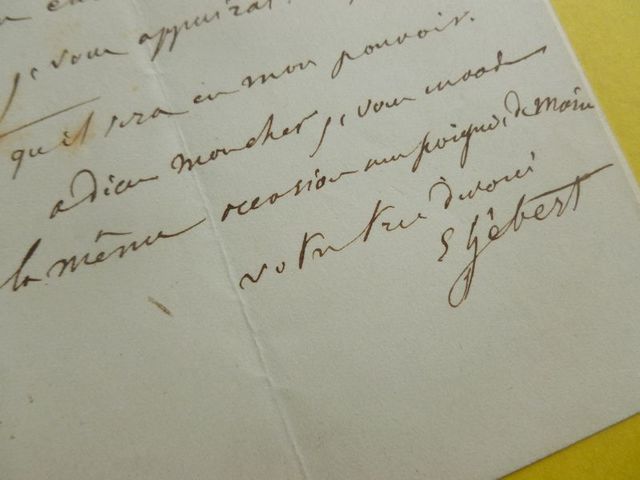 je vous appuirai
qu'il sera en mon pouvoir.
adieu moncher je vous
la même occasion une poignée de main
votre tres devoué
E Hébert